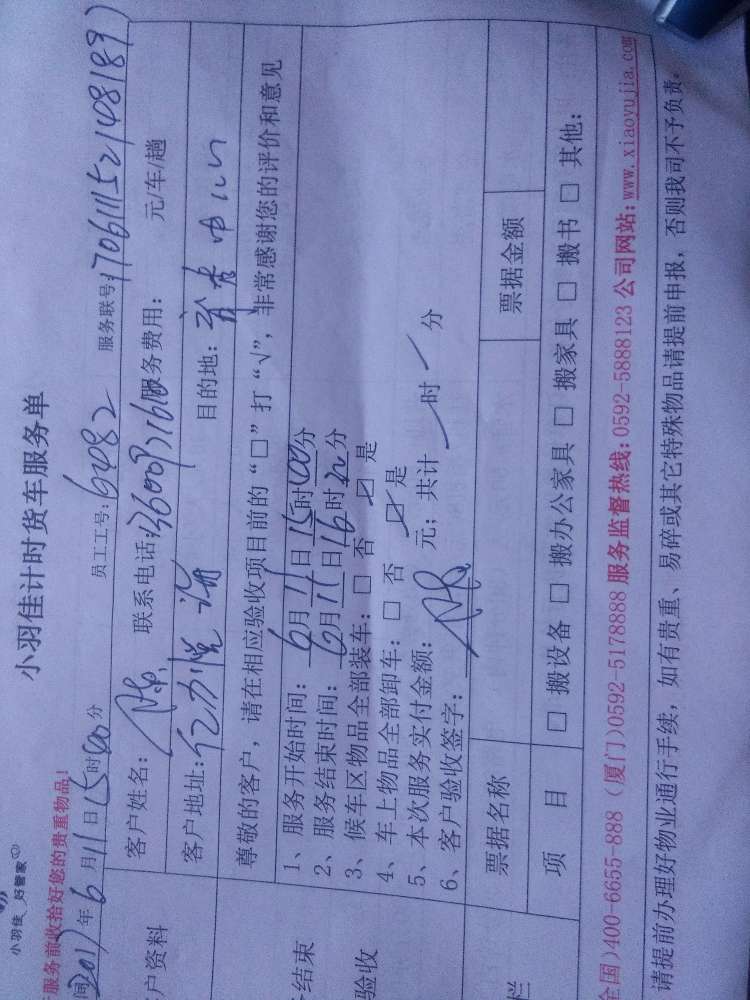 小羽佳 好管家
小羽佳计时货车服务单
服务前收拾好您的贵重物品!
间2017年6月11日15时00分 员工工号: 6482 服务联号: 170611152148189
户资料 客户姓名: 联系电话: 服务费用: 元/车/趟
客户地址: 目的地:
尊敬的客户,请在相应验收项目前的“□”打“√”,非常感谢您的评价和意见
结束
验收
1、服务开始时间: 6月11日15时00分
2、服务结束时间: 6月11日16时20分
3、候车区物品全部装车: □ 否 ☑ 是
4、车上物品全部卸车: □ 否 ☑ 是
5、本次服务实付金额: 元; 共计 时 分
6、客户验收签字:
票据名称 票据金额
栏 项 目 □ 搬设备 □ 搬办公家具 □ 搬家具 □ 搬书 □ 其他:
全国)400-6655-888 (厦门)0592-5178888 服务监督热线: 0592-5888123 公司网站: www.xiaoyujia.com
请提前办理好物业通行手续, 如有贵重、易碎或其它特殊物品请提前申报, 否则我司不予负责。